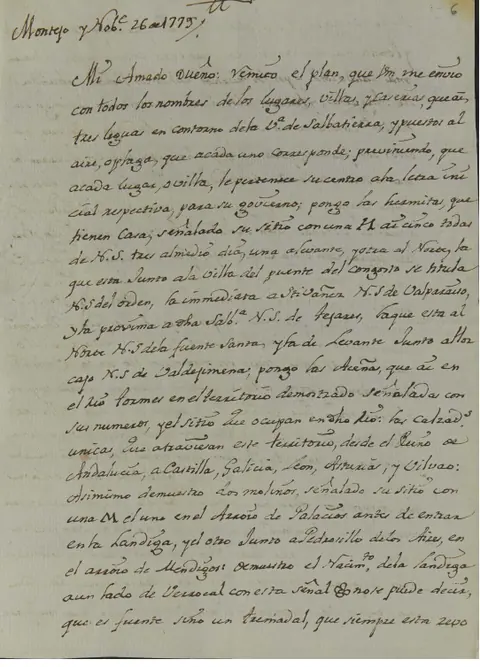 6
Montejo y Nobe. 26 de 1779
Mi Amado Dueño: remito el plan, que Vm. me envio
con todos los nombres de los lugares, villas, y caserias que ai
tres leguas en contorno de la Va. de Salbatierra, y puestos al
aire, o plaga, que acada uno corresponde; previniendo, que
acada lugar, o villa, le pertenece su centro ala letra ini
cial respectiva, para su govierno; pongo las hermitas, que
tienen Casa; señalado su sitio con una H ai cinco todas
de N.S. tres almedio dia, una alevante, y otra al Norte, la
que esta Junto ala villa del puente del congosto se titula
N.S del orden, la immediata a N.S de Valparaiso,
y la proxima a dha Salba. N.S. de tejares, la que esta al
Norte N.S de la fuente Santa, y la de Levante Junto a hor
cajo N.S de Valdejimena, pongo las Aceñas, que ai en
el Rio tormes en el territorio demostrado señaladas con
sus numeros, y el sitio que ocupan en dho Rio: las calzads.
unicas, que atraviesan este territorio, desde el Reino de
Andalucia, a Castilla, Galicia, Leon, Asturias, y Vilvao:
Asimismo demuestro los molinos, señalado su sitio con
una M el uno en el Arroio de Palacios antes de entrar
en la Landiga, y el otro Junto a Pedrosillo de los Aires, en
el arroio de Mendigos: demuestro el Nacimto. de la Landiga
a un lado de Verrocal con esta señal no se puede decir,
que es fuente sino un tremadal, que siempre esta